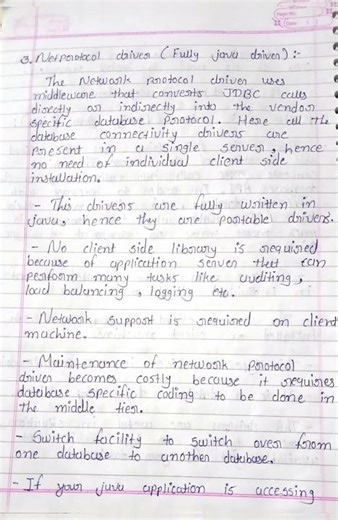 3. Netprotocol driver (Fully java driver) :-
The Network protocol driver uses
middleware that converts JDBC calls
directly or indirectly into the vendor
specific database protocol. Here all the
database connectivity drivers are
present in a single server, hence
no need of individual client side
installation.
- The drivers are fully written in
java, hence they are portable drivers.
- No client side library is required
because of application server that can
perform many tasks like auditing,
load balancing, logging etc.
- Network support is required on client
machine.
- Maintenance of network protocol
driver becomes costly because it requires
database specific coding to be done in
the middle tier.
- Switch facility to switch over from
one database to another database.
- If your java application is accessing